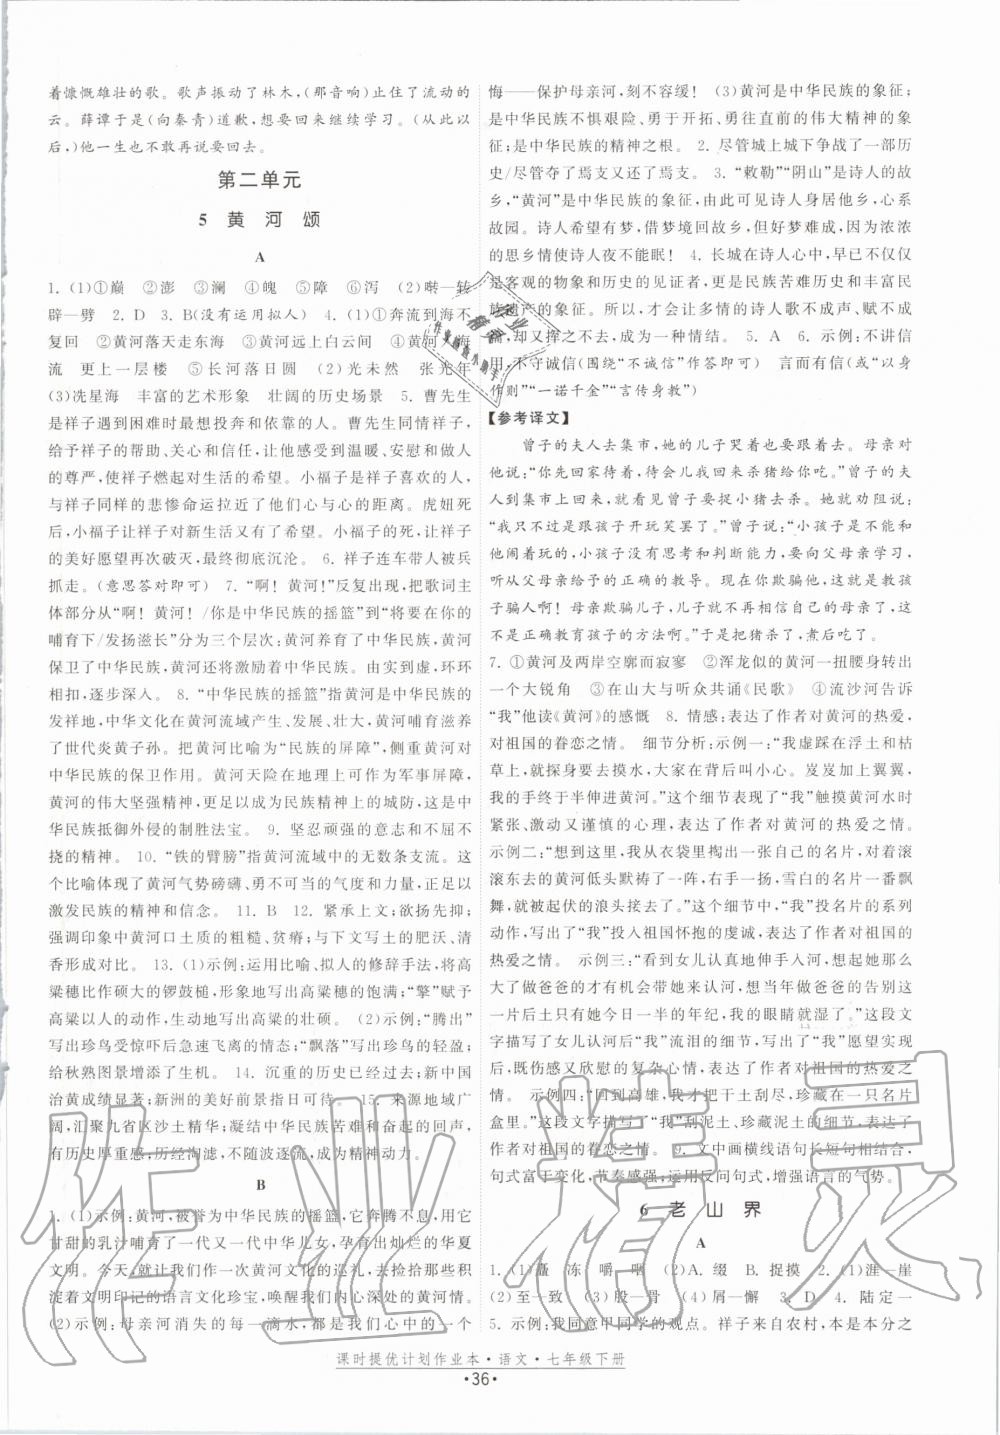 着慷慨雄壮的歌。歌声振动了林木,(那音响)止住了流动的
云。薛谭于是(向秦青)道歉,想要回来继续学习。(从此以
后,)他一生也不敢再说要回去。
第二单元
5 黄 河 颂
A
1. (1)①巅 ②澎 ③澜 ④魄 ⑤障 ⑥泻 (2)啭—转
辟—劈 2. D 3. B(没有运用拟人) 4. (1)①奔流到海不
复回 ②黄河落天走东海 ③黄河远上白云间 ④黄河入海
流 更上一层楼 ⑤长河落日圆 (2)光未然 张光年
(3)冼星海 丰富的艺术形象 壮阔的历史场景 5. 曹先生
是祥子遇到困难时最想投奔和依靠的人。曹先生同情祥子,
给祥子的帮助、关心和信任,让祥子感受到温暖、安慰和做人
的尊严,使祥子燃起对生活的希望。小福子是祥子喜欢的人,
与祥子同样的悲惨命运拉近了他们心与心的距离。虎妞死
后,小福子让祥子对新生活又有了希望。小福子的死,让祥子
的美好愿望再次破灭,最终彻底沉沦。 6. 祥子连车带人被兵
抓走。(意思答对即可) 7. “啊! 黄河!”反复出现,把歌词主
体部分从“啊! 黄河! /你是中华民族的摇篮”到“将要在你的
哺育下/发扬滋长”分为三个层次:黄河养育了中华民族,黄河
保卫了中华民族,黄河还将激励着中华民族。由实到虚,环环
相扣,逐步深入。 8. “中华民族的摇篮”指黄河是中华民族的
发祥地,中华文化在黄河流域产生、发展、壮大,黄河哺育滋养
了世代炎黄子孙。把黄河比喻为“民族的屏障”,侧重黄河对中华
民族的保卫作用。黄河天险在地理上可被当作军事屏障,
黄河的伟大坚强精神,更足以成为民族精神上的城防,这是中
华民族抵御外侵的制胜法宝。 9. 坚忍顽强的意志和不屈抗
挠的精神。 10. “铁的臂膀”指黄河流域中的无数条支流。这
个比喻体现了黄河气势磅礴、勇不可当的气度和力量,足以
激发民族的精神和信念。 11. B 12. 紧承上文;欲扬先抑;
强调印象中黄河口土质的粗糙、贫瘠;与下文写土的肥沃、清
香形成对比。 13. (1)示例:运用比喻、拟人的修辞手法,将高
粱穗比作硕大的锣鼓槌,形象地写出高粱穗的饱满;“擎”赋予
高粱以人的动作,生动地写出高粱的茁壮。 (2)示例:“腾出”
写出珍鸟受惊吓后急速飞离的情态;“飘落”写出珍鸟的轻盈;
给秋熟图景增添了生机。 14. 沉重的历史已经过去;新中国
治黄成绩显著;新洲的美好前景指日可待。 15. 来源地域广
阔,汇聚九省区沙土精华;凝结中华民族苦难和奋斗的回声,
有历史厚重感;历经淘滤,不随波逐流,成为精神动力。
B
1. (1)示例:黄河,被誉为中华民族的摇篮,它奔腾不息,用它
甘甜的乳汁哺育了一代又一代中华儿女,孕育出灿烂的华夏
文明。今天,就让我们作一次黄河文化的巡礼,去捡拾那些积
淀着文明印记的语言文化珍宝,唤醒我们内心深处的黄河情。
(2)示例:母亲河消失的每一滴水,都是我们心中的一个
悔——保护母亲河,刻不容缓! (3)黄河是中华民族的象征;
是中华民族不惧艰险、勇于开拓、勇往直前的伟大精神的象
征;是中华民族的精神之根。 2. 尽管城上城下争战了一部历
史/尽管夺了焉支又还了焉支。 3. “敕勒”“阴山”是诗人的故
乡,“黄河”是中华民族的象征,由此可见诗人身居他乡,心系
故园。诗人希望有梦,借梦境回故乡,但好梦难成,因为浓浓
的思乡情使诗人夜不能眠! 4. 长城在诗人心中,早已不仅仅
是客观的物象和历史的见证者,更是民族苦难历史和丰富民
族遗产的象征。所以,才会让多情的诗人歌不成声、赋不成
篇,却又挥之不去,成为一种情结。 5. A 6. 示例:不讲信
用,不守诚信(围绕“不诚信”作答即可) 言而有信(或“以身
作则”“一诺千金”“言传身教”)
【参考译文】
曾子的夫人去集市,她的儿子哭着也要跟着去。母亲对
他说:“你先回家待着,待会儿我回来杀猪给你吃。”曾子的夫
人到集市上回来,就看见曾子要捉小猪去杀。她就劝阻说:
“我只不过是跟孩子开玩笑罢了。”曾子说:“小孩子是不能和
他闹着玩的,小孩子没有思考和判断能力,要向父母亲学习,
听从父母亲给予的正确的教导。现在你欺骗他,这就是教孩
子骗人啊! 母亲欺骗儿子,儿子就不再相信自己的母亲了,这
不是正确教育孩子的方法啊。”于是把猪杀了,煮后吃了。
7. ①黄河及两岸空廓而寂寥 ②浑龙似的黄河一扭腰身转出
一个大锐角 ③在山大与听众共诵《民歌》 ④流沙河告诉
“我”他读《黄河》的感慨 8. 情感:表达了作者对黄河的热爱,
对祖国的眷恋之情。 细节分析:示例一:“我虚踩在浮土和枯
草上,就探身要去摸水,大家在背后叫小心。岌岌加上翼翼,
我的手终于半伸进黄河。”这个细节表现了“我”触摸黄河水时
紧张、激动又谨慎的心理,表达了作者对黄河的热爱之情。
示例二:“想到这里,我从衣袋里掏出一张自己的名片,对着滚
滚东去的黄河低头默祷了一阵,右手一扬,雪白的名片一番飘
舞,就被起伏的浪头接去了。”这个细节中,“我”投名片的系列
动作,写出了“我”投入祖国怀抱的虔诚,表达了作者对黄河的
热爱之情。 示例三:“看到女儿认真地伸手入河,想起她那么
大了做爸爸的才有机会带她来认河,想当年做爸爸的告别这
一片后土只有她今日一半的年纪,我的眼睛就湿了。”这段文
字描写了女儿认河后“我”流泪的细节,写出了“我”愿望实现
后,既伤感又欣慰的复杂心情,表达了作者对祖国的热爱之
情。 示例四:“回到高雄,我才把干土刮尽,珍藏在一只名片
盒里。”这段文字描写了“我”刮泥土、珍藏泥土的细节,表达了
作者对祖国的眷恋之情。 9. 文中画横线语句长短句相结合,
句式富于变化,节奏感强;运用反问句式,增强语言的气势。
6 老 山 界
A
1. (1)矗 冻 嚼 咽 (2)A. 缀 B. 捉摸 2. (1)涯—崖
(2)至—致 (3)股—骨 (4)屑—懈 3. D 4. 陆定一
5. 示例:我同意甲同学的观点。祥子来自农村,本本分分
课时提优计划作业本·语文·七年级下册
·36·
作业精灵